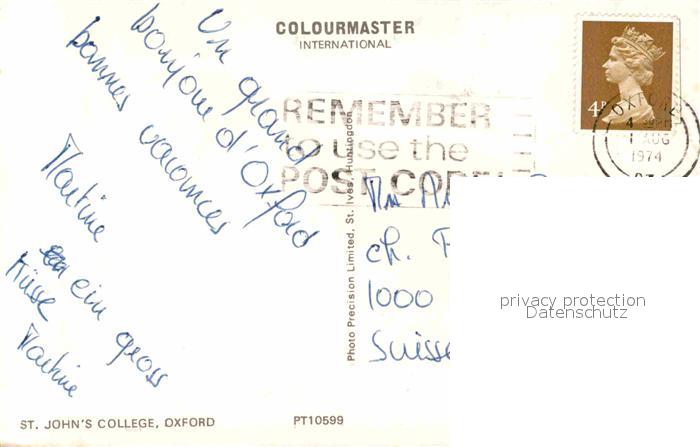 COLOURMASTER
INTERNATIONAL
Un grand
bonjour d'Oxford
bonnes vacances
Martine
ein gross
Küsse
Martine
REMEMBER
to use the
POST CODE
OXFORD
4
1 AUG
1974
4P
Photo Precision Limited, St. Ives, Huntingdon
ch.
1000
Suisse
privacy protection
Datenschutz
ST. JOHN'S COLLEGE, OXFORD
PT10599